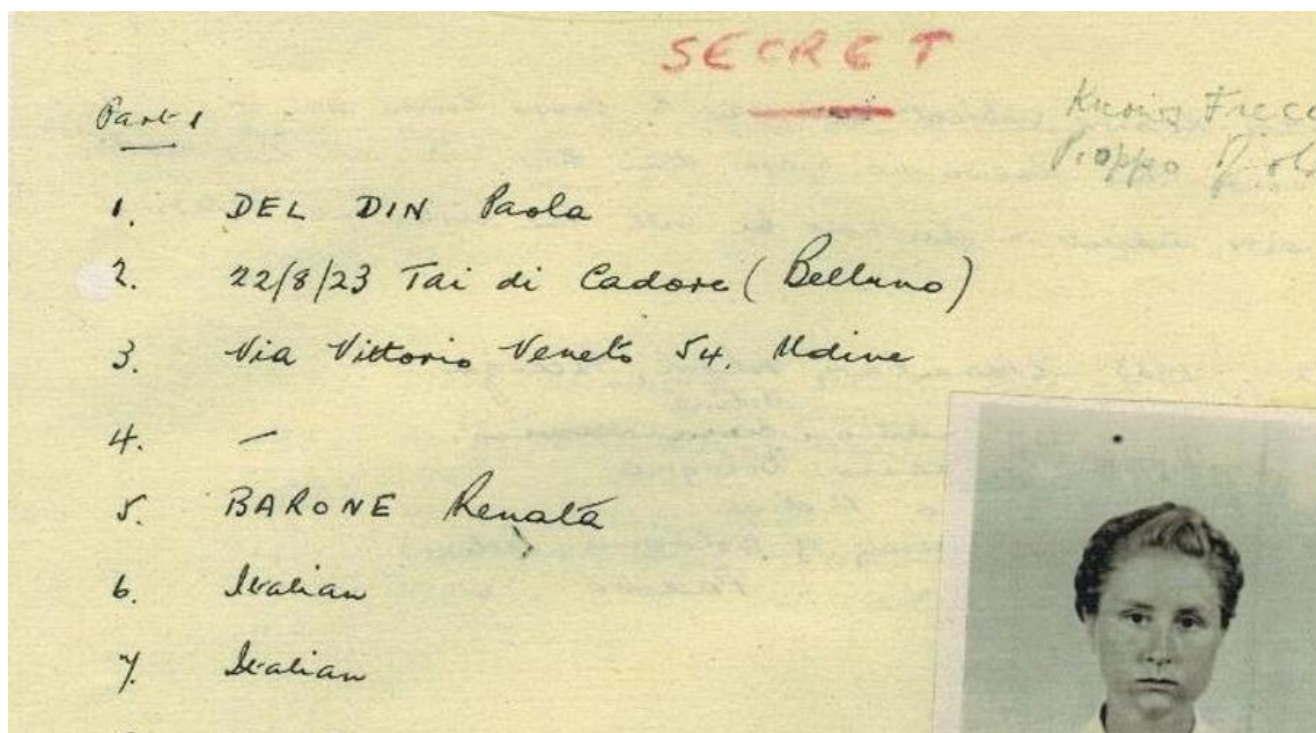 SECRET
Part 1
Knows Freccia
Pioppo
1. DEL DIN Paola
2. 22/8/23 Tai di Cadore (Belluno)
3. Via Vittorio Veneto 54. Udine
4. —
5. BARONE Renata
6. Italian
7. Italian